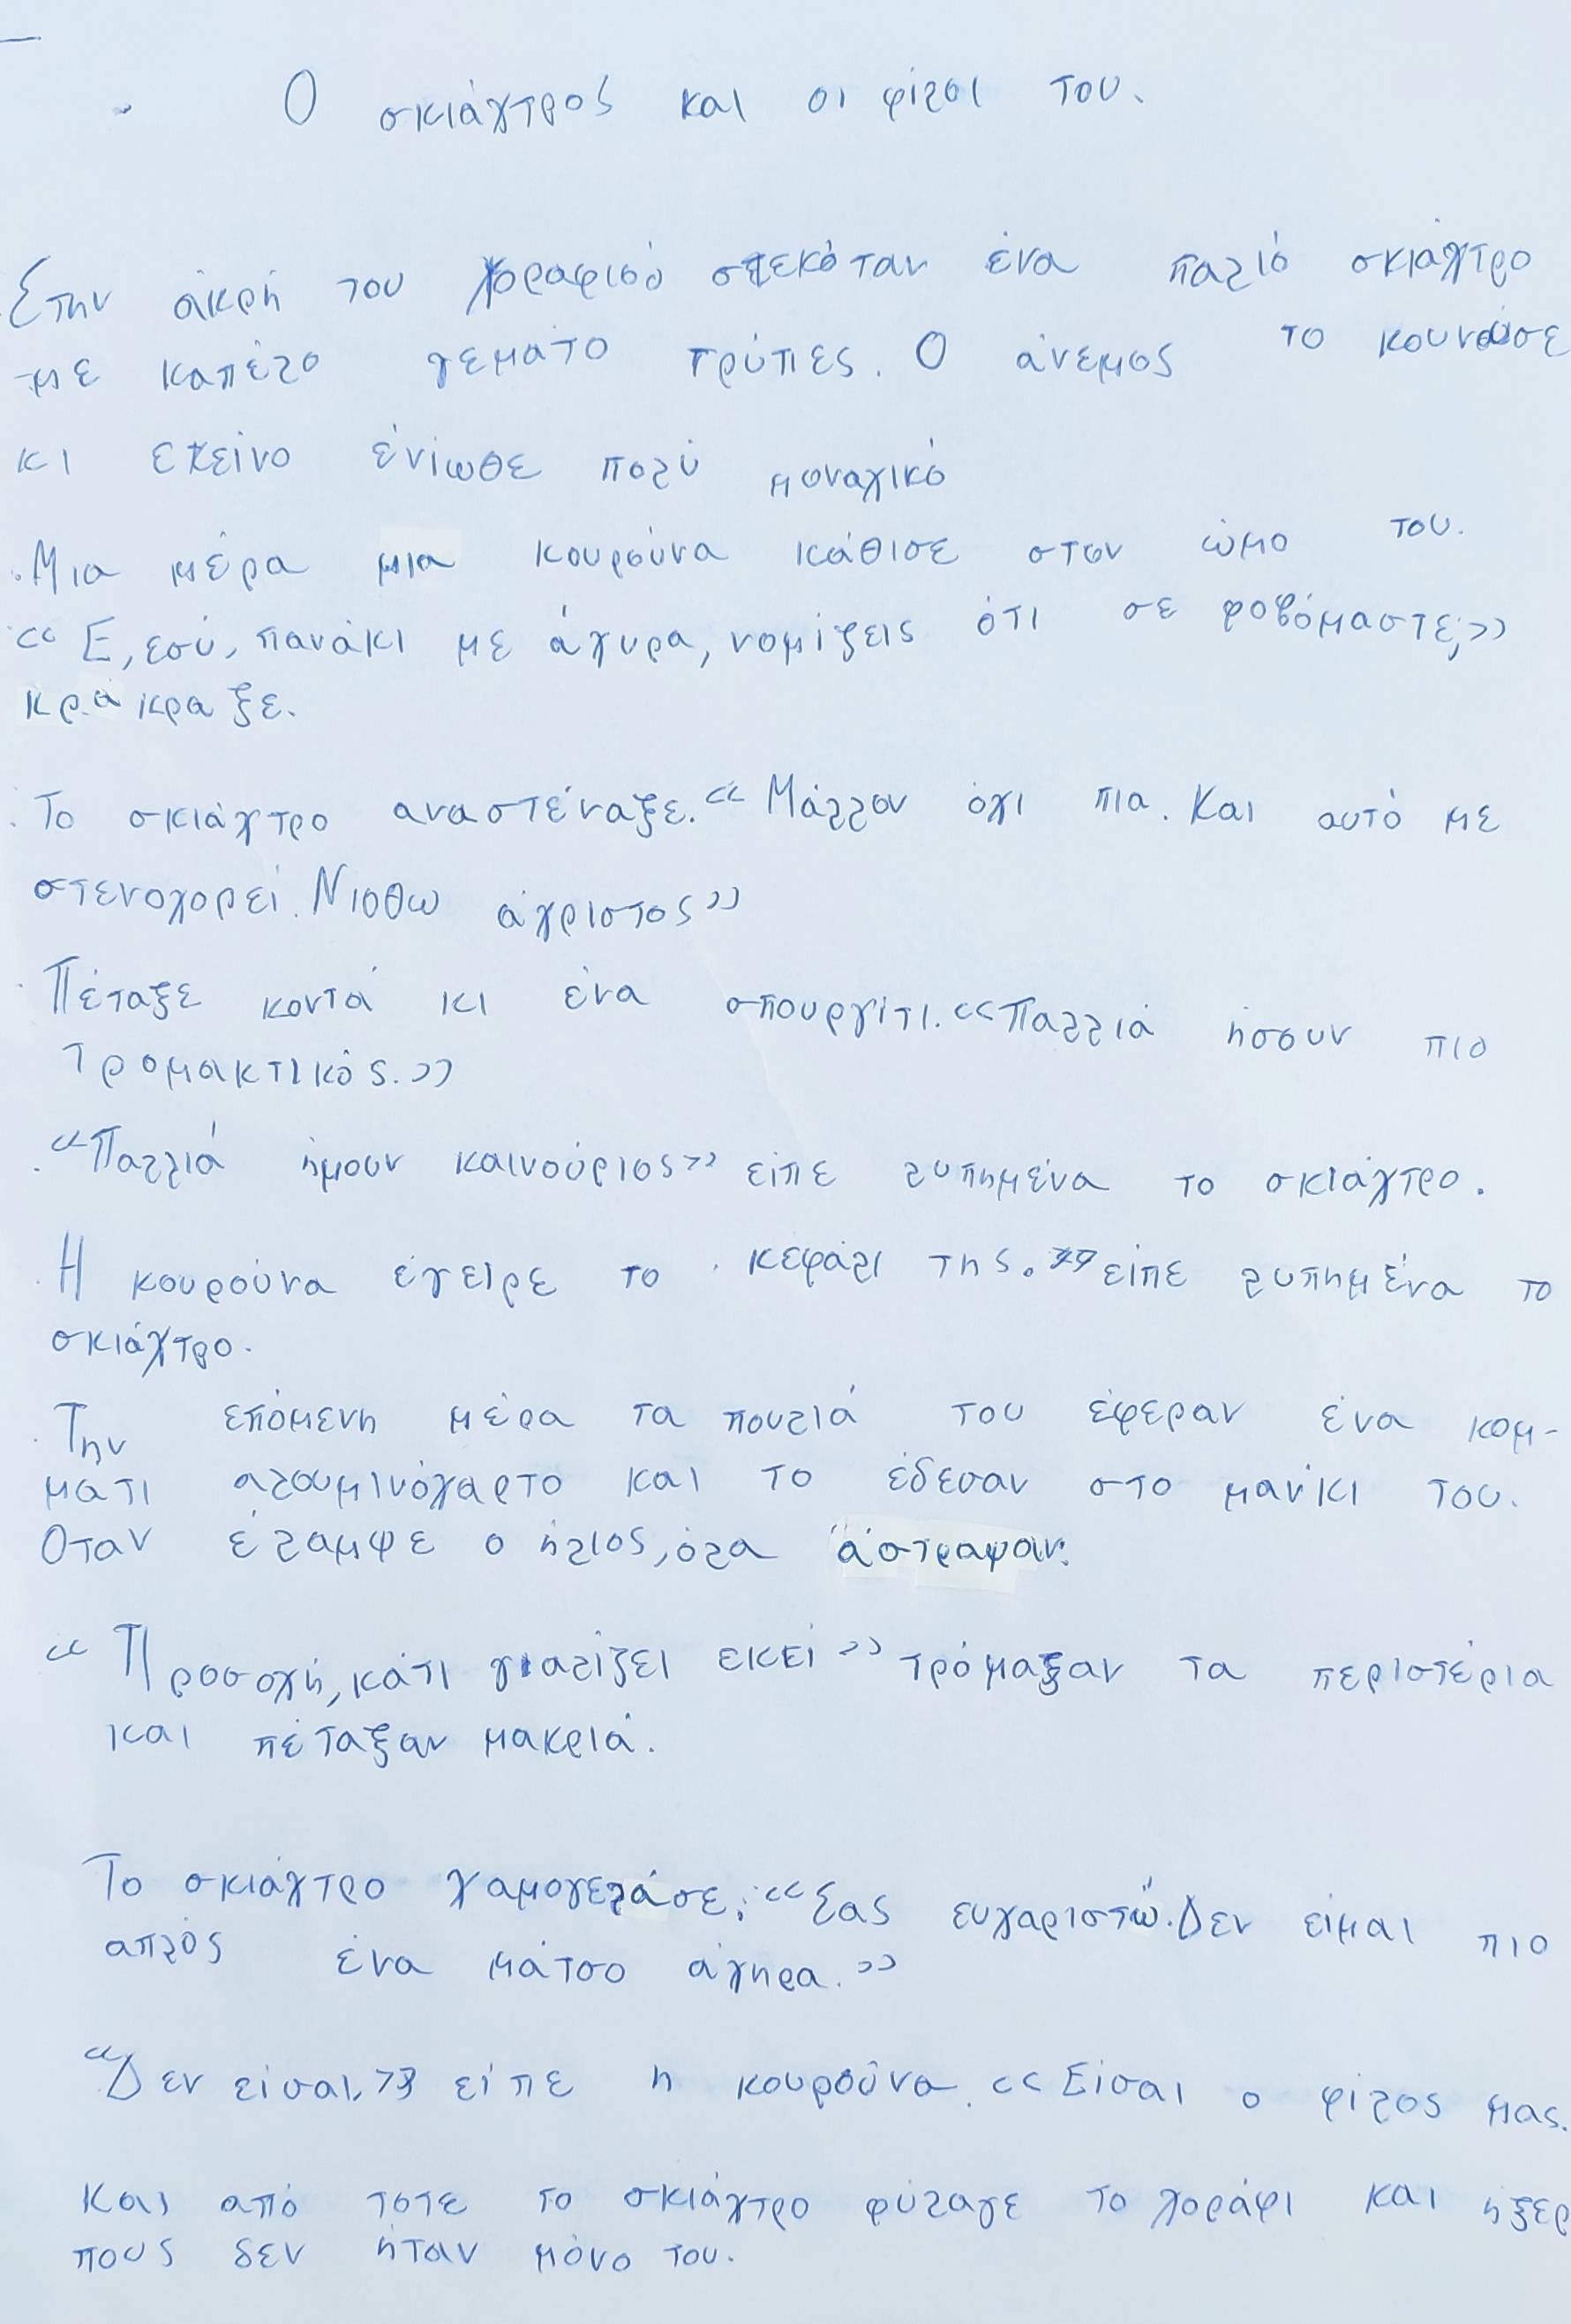 Ο σκιάχτρος και οι φίλοι του.
Στην άκρή του χοραφιού στεκόταν ένα παλιό σκιάχτρο
με καπέλο γεμάτο τρύπιες. Ο άνεμος το κουνούσε
κι εκείνο ένιωθε πολύ μοναχικό
Μια μέρα μια κουρούνα κάθισε στον ώμο του.
«Ε, εσύ, πανάκι με άχυρα, νομίζεις ότι σε φοβόμαστε;»
κράκραξε.
Το σκιάχτρο αναστέναξε. «Μάλλον όχι πια. Και αυτό με
στενοχορεί. Νιοθω άχριστος»
Πέταξε κοντά κι ένα σπουργίτι. «Παλλιά ήσουν πιο
τρομακτικός.»
«Παλλιά ήμουν καινούριος» είπε λυπημένα το σκιάχτρο.
Η κουρούνα έγειρε το κεφάλι της.» είπε λυπημένα το
σκιάχτρο.
Την επόμενη μέρα τα πουλιά του έφεραν ένα κομ-
ματι αλουμινόχαρτο και το έδεσαν στο μανίκι του.
Οταν έλαμψε ο ήλιος, όλα άστραψαν.
«Προσοχή, κάτι γιαλίζει εκεί» τρόμαξαν τα περιστέρια
και πέταξαν μακριά.
Το σκιάχτρο χαμογελάσε. «Σας ευχαριστώ. Δεν είμαι πιο
απλός ένα μάτσο άχηρα.»
«Δεν είσαι.» είπε η κουρούνα. «Είσαι ο φίλος μας.
Και από τοτε το σκιάχτρο φύλαγε το χοράφι και ήξερ
πους δεν ήταν μόνο του.